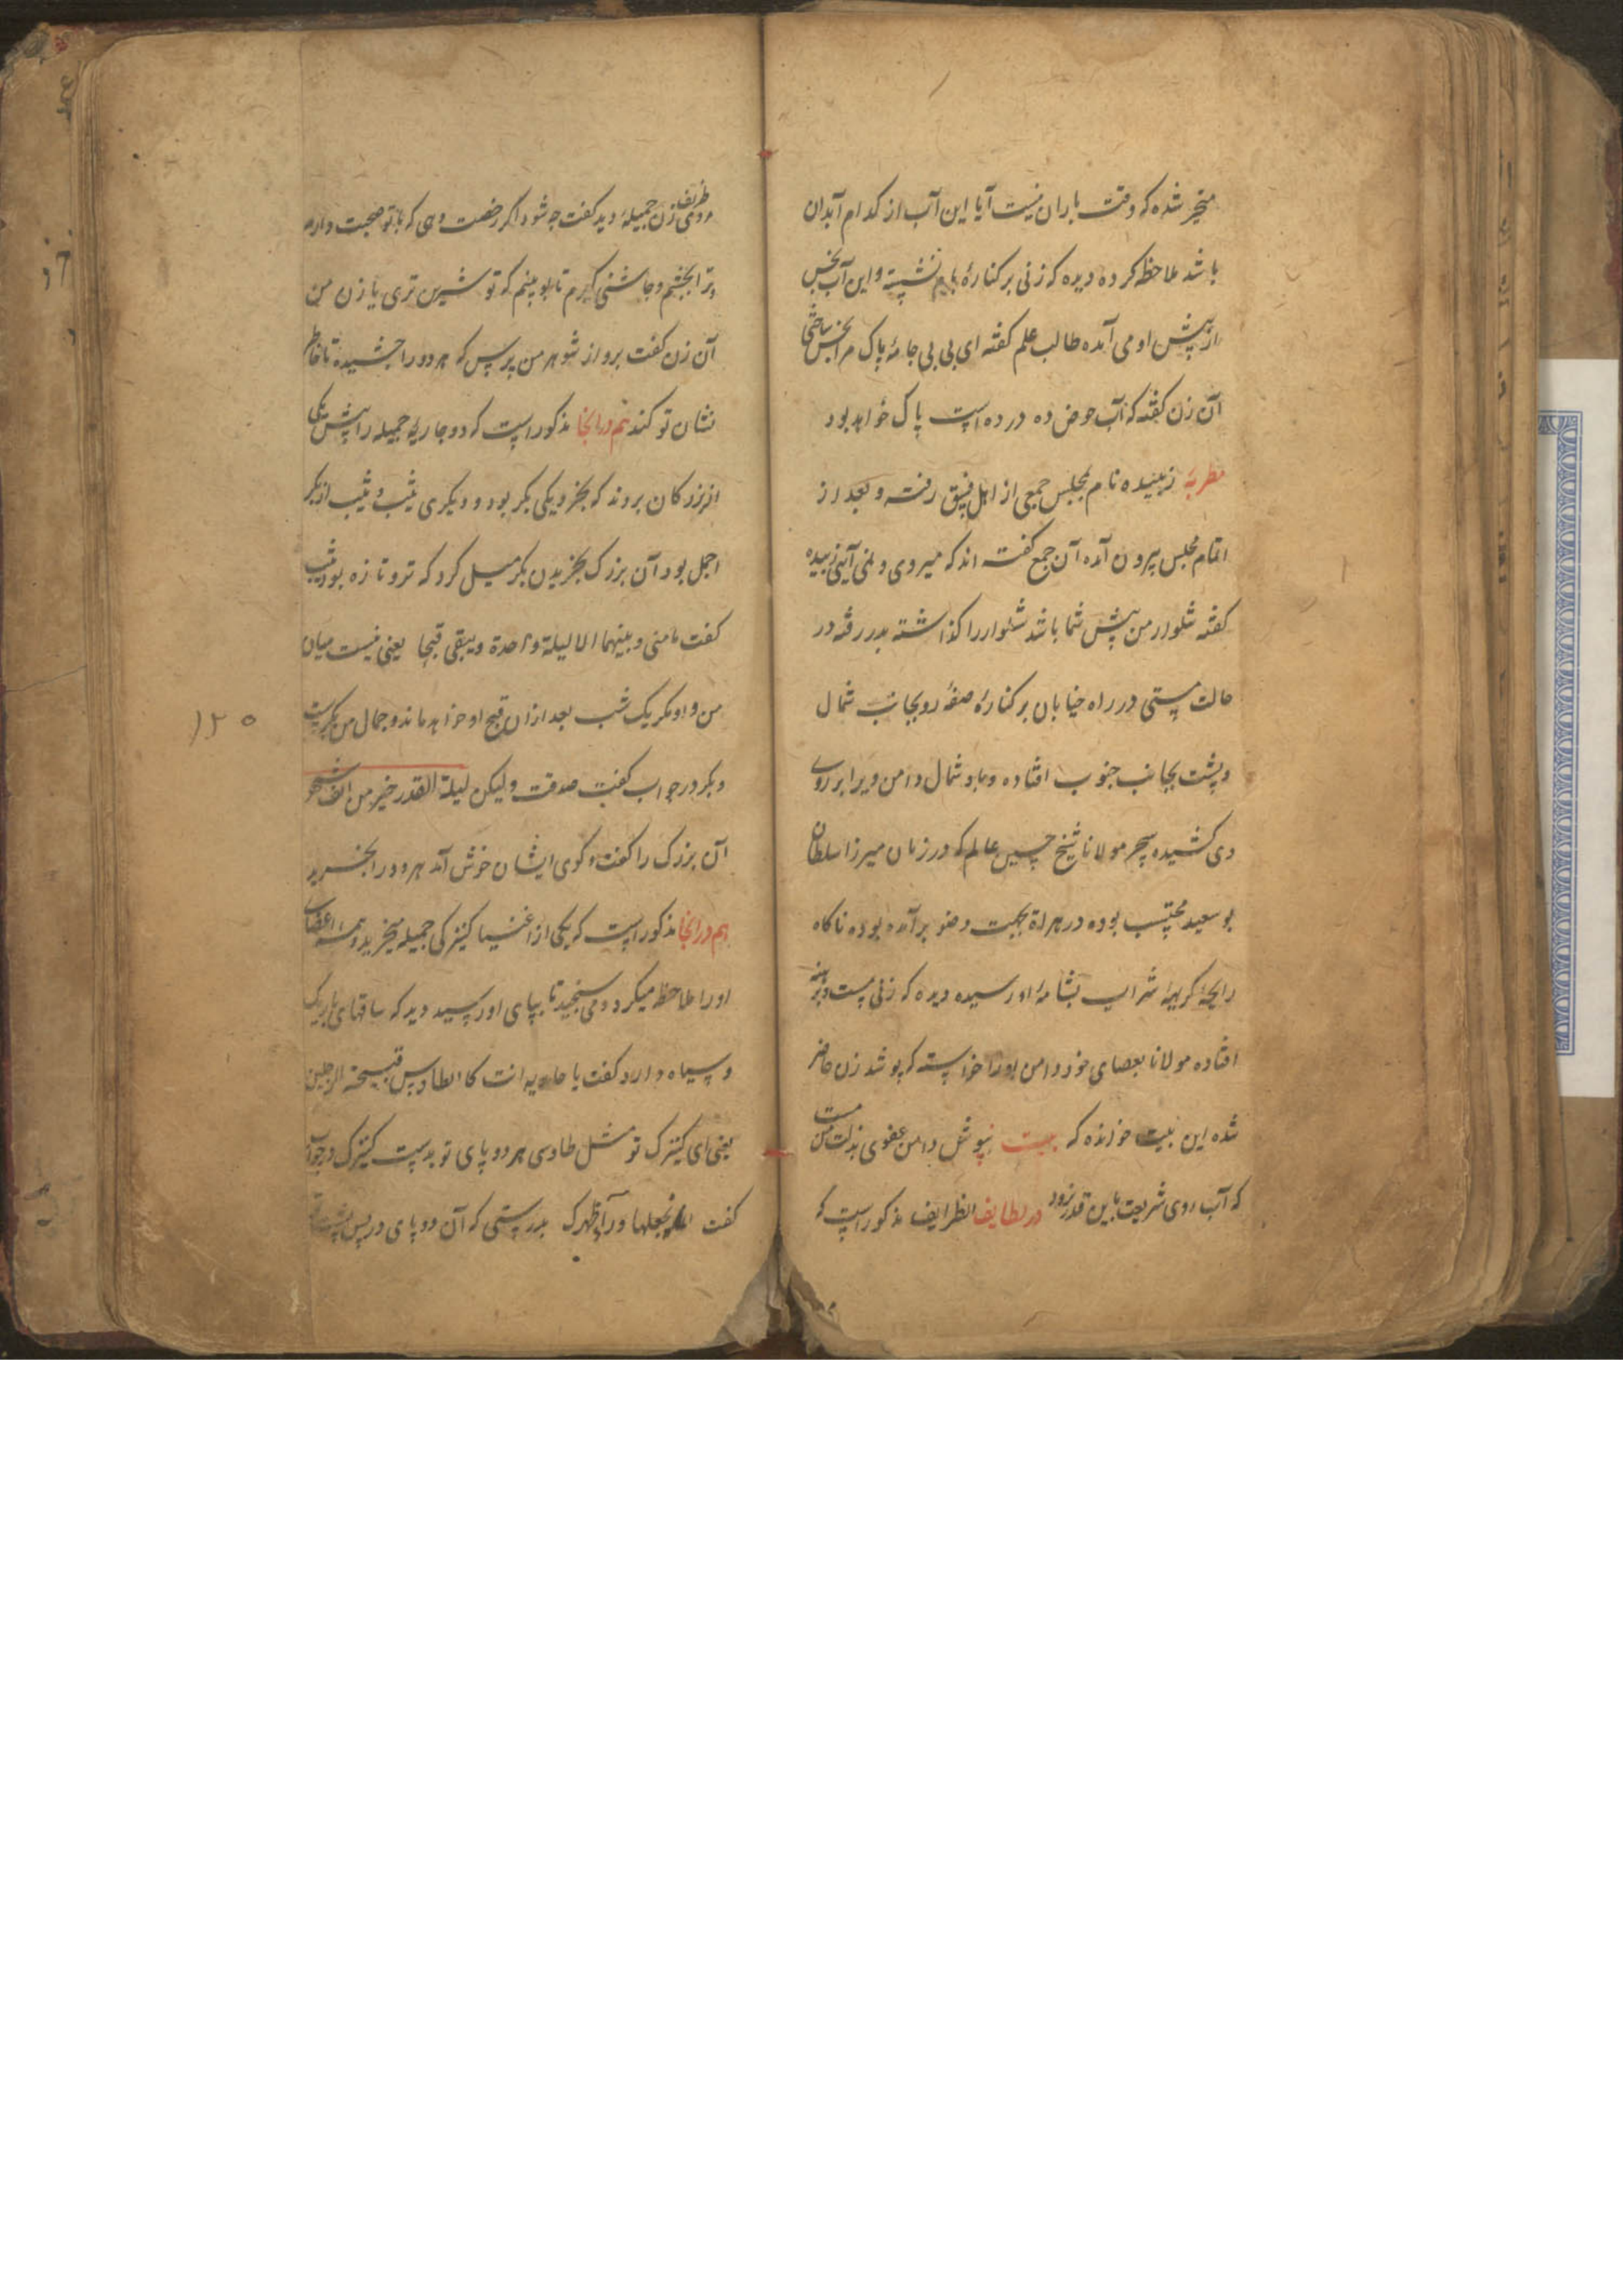 متحیر شده که وقت باران نیست آیا این آب از کدام آبدان
باشد ملاحظه کرده دیده که زنی بر کنارهٔ بام نشسته و این آب نجس
از پیش او می آمده طالب علم گفته ای بی بی جامهٔ پاک مرا نجس ساختی
آن زن گفته که آب حوض ده در ده است پاک خواهد بود
مطربهٔ زبیده نام بمجلس جمعی از اهل فسق رفته و بعد از
اتمام مجلس بیرون آمده آن جمع گفته اند که میروی و نمی آیی زبیده
گفته شلوار من پیش شما باشد شلوار را گذاشته بدر رفته در
حالت مستی در راه خیابان بر کنارهٔ صفهٔ رو بجانب شمال
و پشت بجانب جنوب افتاده و باد شمال دامن ویرا بر روی
وی کشیده سحر مولانا شیخ حسین عالم که در زمان میرزا سلطان
بو سعید محتسب بوده در هراة بجهت وضو بر آمده بوده ناکاه
رایحهٔ کریههٔ شراب بشامهٔ او رسیده دیده که زنی مست و برهنه
افتاده مولانا بعصای خود دامن او را خواسته که پوشد زن حاضر
شده این بیت خوانده که بیت بپوشل دامن عفوی بذلت من مست
که آب روی شریعت باین قدر نرود در لطایف الظرایف مذکور است که
ظریفی روزی زن جمیلهٔ دید گفت چه شود اگر رخصت دهی که با تو صحبت دارم
و ترا بچشم و چاشنی گیرم تا ببینم که تو شیرین تری یا زن من
آن زن گفت برو از شوهر من پرس که هر دو را چشیده تا خاطر
نشان تو کند هم در انجا مذکور است که دو جاریهٔ جمیله را پیش یکی
از بزرگان بردند که بخرد یکی بکر بود و دیگری ثیب و ثیب از بکر
اجمل بود آن بزرگ بخریدن بکر میل کرد که تر و تازه بود ثیب
گفت ما منی و بینهما الا لیلة واحدة و یبقی قبحا یعنی نیست میان
من و او مگر یک شب بعد از ان قبح او خواهد ماند و جمال من
و بکر در جواب گفت صدقت و لیکن لیلة القدر خیر من الف شهر
آن بزرگ را گفت و گوی ایشان خوش آمد هر دو را بخرید
هم در انجا مذکور است که یکی از اغنیا کنیزکی جمیله میخرید و همه اعضای
او را ملاحظه میکرد و می سنجید تا بپای او رسید دید که ساقهای باریک
و سیاه دارد گفت یا جاریه انت کالطاوس قبیحة الرجلین
یعنی ای کنیزک تو مثل طاوسی هر دو پای تو بدست کنیزک در جواب
گفت نجعلها ورآء ظهرک بدرستی که آن دو پای در پس پشت
۱۲۰